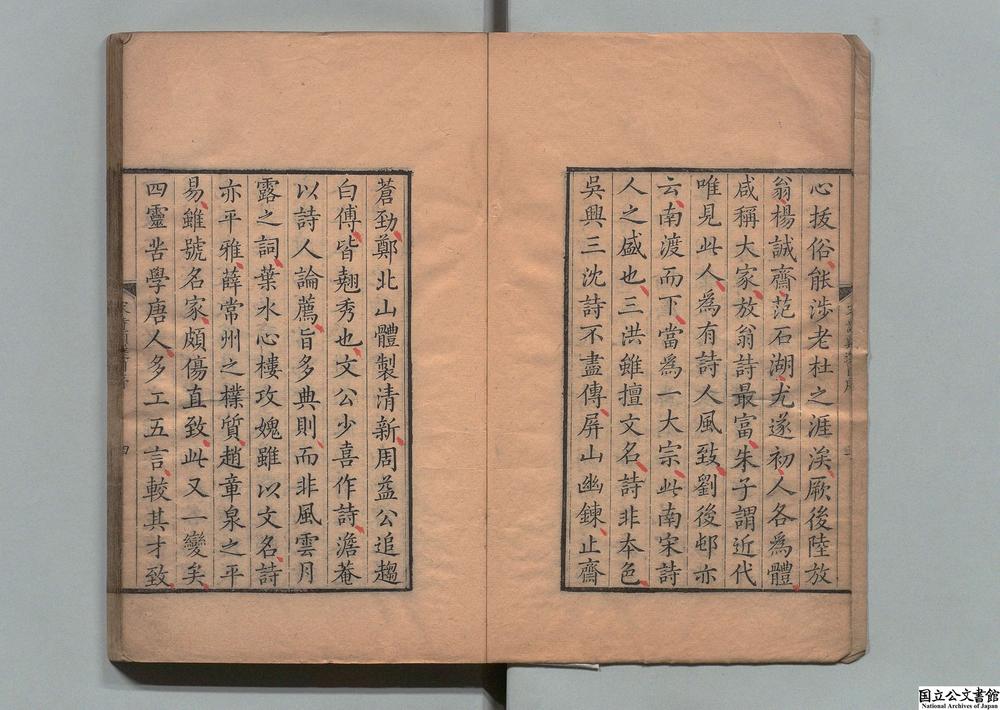 心拔俗能涉老杜之涯涘厥後陸放
翁楊誠齋范石湖尤遂初人各為體
咸稱大家放翁詩最富朱子謂近代
唯見此人為有詩人風致劉後邨亦
云南渡而下當為一大宗此南宋詩
人之盛也三洪雖擅文名詩非本色
吳興三沈詩不盡傳屏山幽鍊止齋
蒼勁鄭北山體製清新周益公追趨
白傅皆翹秀也文公少喜作詩澹菴
以詩人論薦旨多典則而非風雲月
露之詞葉水心樓攻媿雖以文名詩
亦平雅薛常州之樸質趙章泉之平
易雖號名家頗傷直致此又一變矣
四靈苦學唐人多工五言較其才致
四
国立公文書館
National Archives of Japan